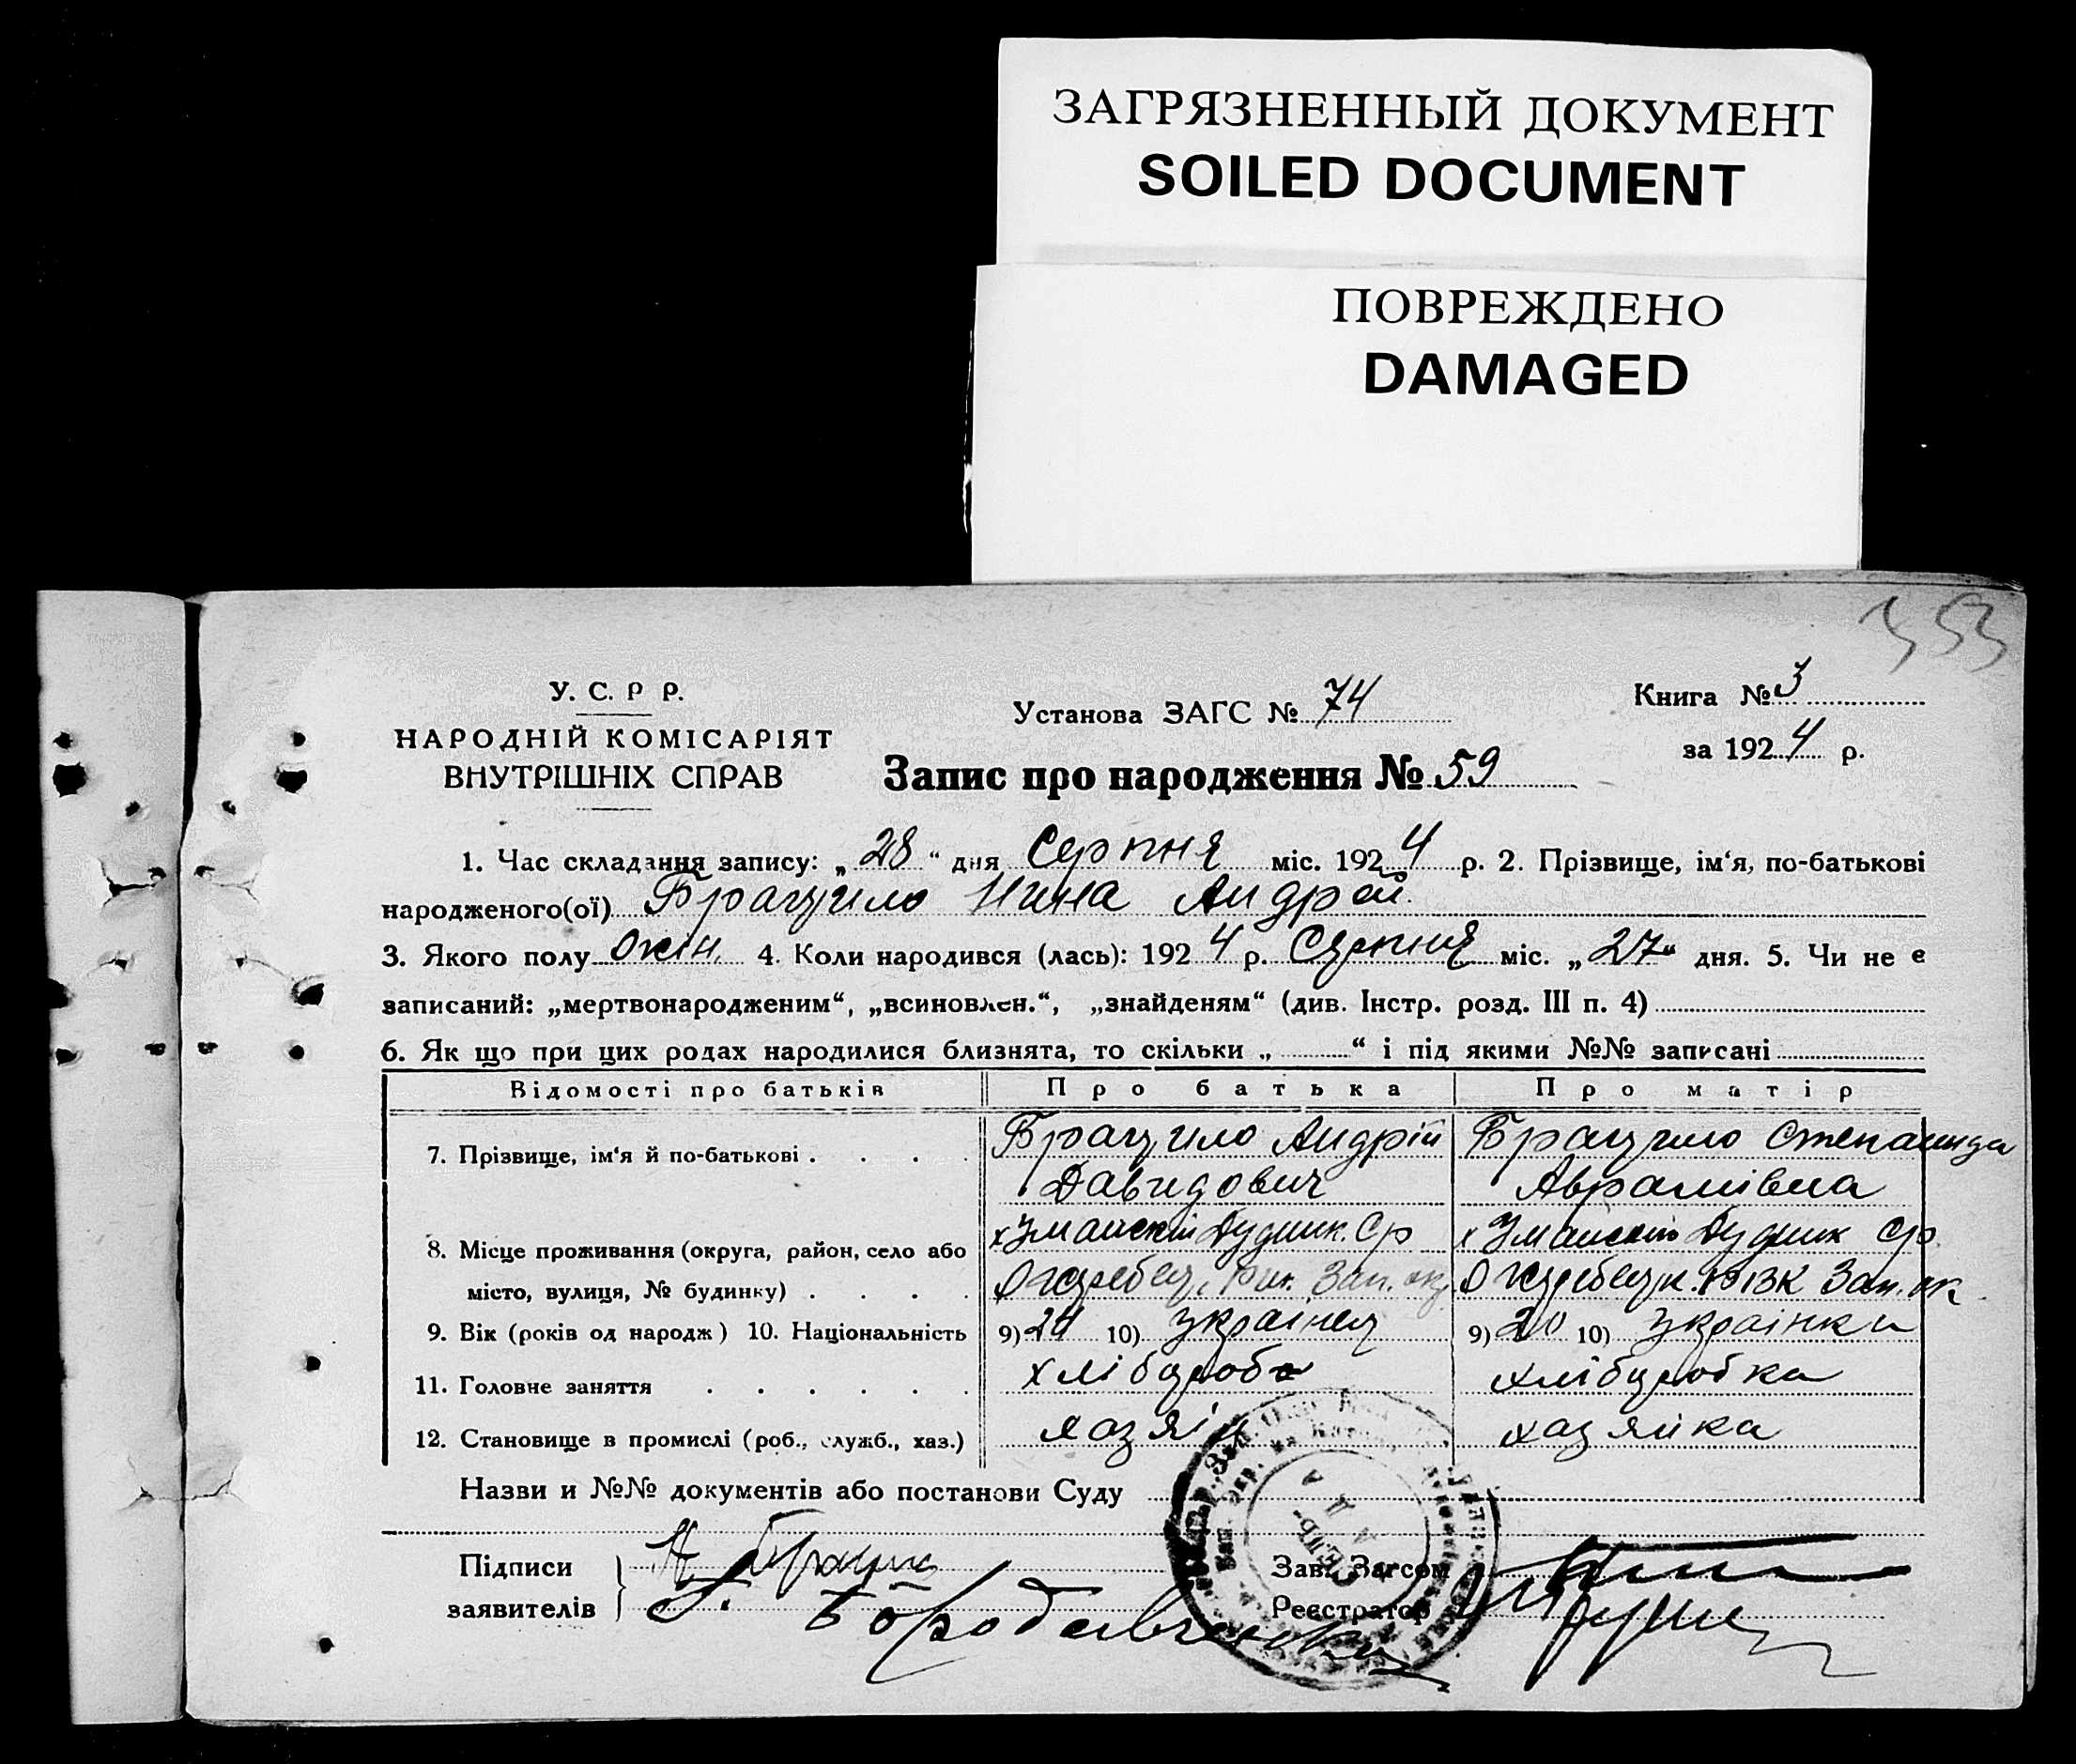 ЗАГРЯЗНЕННЫЙ ДОКУМЕНТ
SOILED DOCUMENT
ПОВРЕЖДЕНО
DAMAGED
353
У. С. Р Р.
НАРОДНІЙ КОМІСАРІЯТ
ВНУТРІШНІХ СПРАВ
Установа ЗАГС № 74
Книга № 3
за 1924 р.
Запис про народження № 59
1. Час складання запису: „28“ дня Серпня міс. 1924 р. 2. Прізвище, ім‘я, по-батькові
народженого(ої) Брацило Нина Андрей.
3. Якого полу жін. 4. Коли народився (лась): 1924 р. Серпня міс. „27“ дня. 5. Чи не є
записаний: „мертвонародженим“, „всиновлен.“, „знайденям“ (див. Інстр. розд. III п. 4)
6. Як що при цих родах народилися близнята, то скільки „ “ і під якими №№ записані
Відомості про батьків Про батька Про матір
7. Прізвище, ім‘я й по-батькові . . . . Брацило Андрій Брацило Степанида
Давидович Аврамівна
8. Місце проживання (округа, район, село або
місто, вулиця, № будинку) . . . . Зап.
9. Вік (років од народж) 10. Національність 9) 24 10) Українец 9) 20 10) Українка
11. Головне заняття . . . . . . хлібороб хліборобка
12. Становище в промислі (роб., служб., хаз.) хазяін хазяйка
Назви и №№ документів або постанови Суду
Підписи
заявителів
Зав. Загсом
Реєстратор